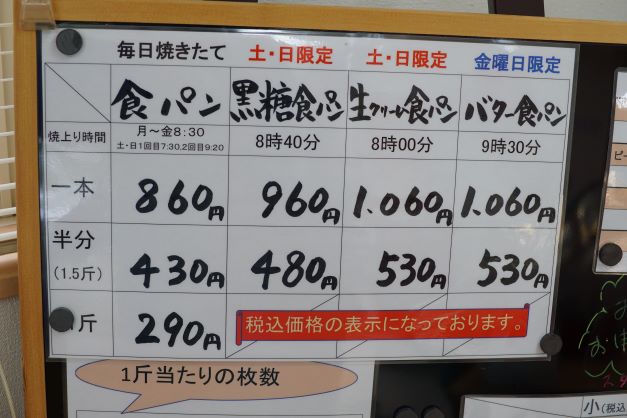 毎日焼きたて 土・日限定 土・日限定 金曜日限定
食パン 黒糖食パン 生クリーム食パン バター食パン
焼上り時間 月～金8:30 8時40分 8時00分 9時30分
土・日1回目7:30,2回目9:20
一本 860円 960円 1.060円 1.060円
半分
(1.5斤) 430円 480円 530円 530円
斤 290円
税込価格の表示になっております。
1斤当たりの枚数
小(税込